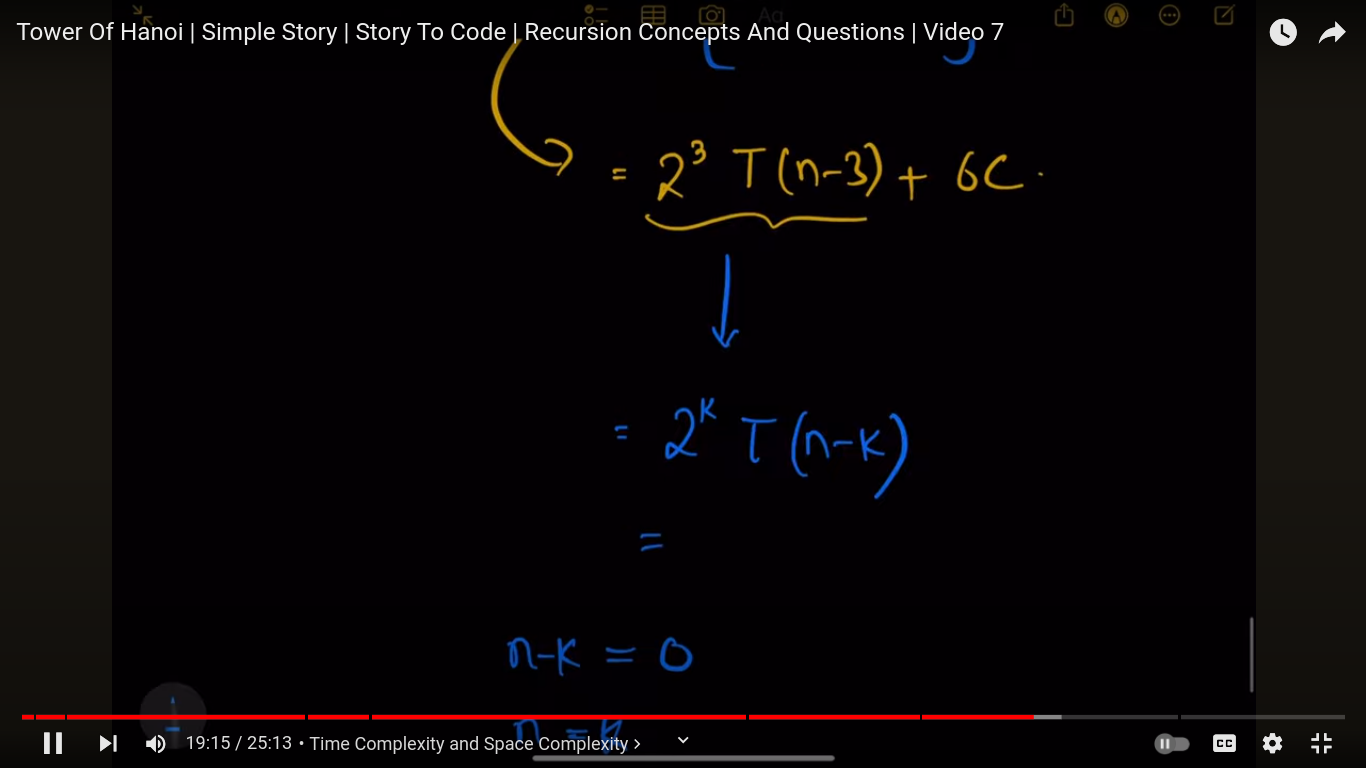 Tower Of Hanoi | Simple Story | Story To Code | Recursion Concepts And Questions | Video 7
Aa
= 2³ T(n-3) + 6C .
= 2ᵏ T(n-k)
=
n-k = 0
n = k
19:15 / 25:13 • Time Complexity and Space Complexity >
CC